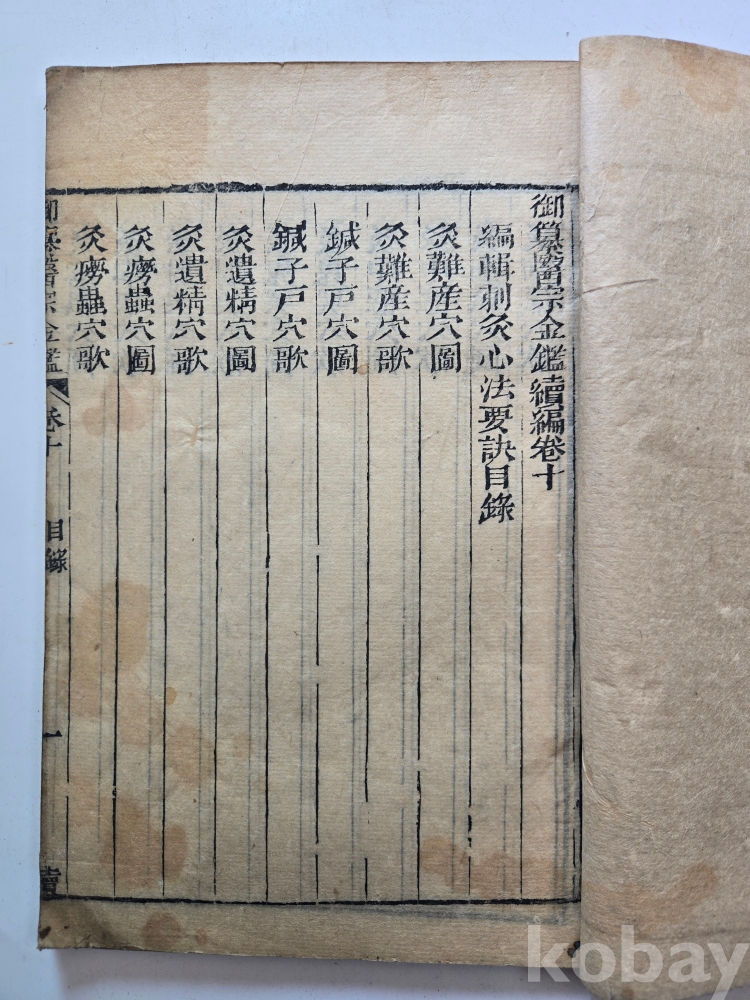 御纂醫宗金鑑續編卷十
編輯刺灸心法要訣目錄
灸難産穴圖
灸難産穴歌
鍼子戸穴圖
鍼子戸穴歌
灸遺精穴圖
灸遺精穴歌
灸癆蟲穴圖
灸癆蟲穴歌
御纂醫宗金鑑 卷十 目錄 一 續
kobay